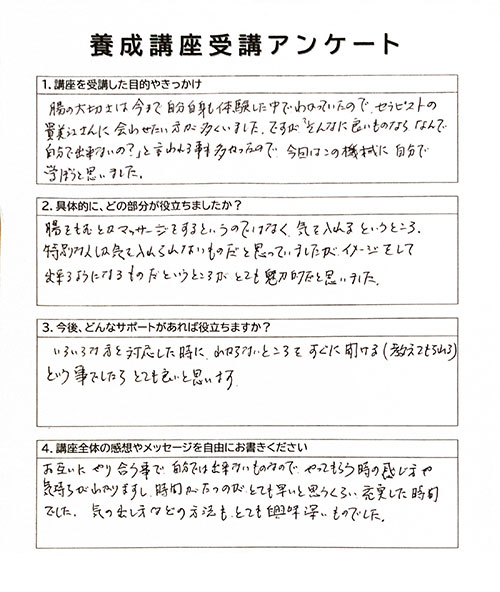 養成講座受講アンケート
1. 講座を受講した目的やきっかけ
腸の大切さは今まで自分自身も体験した中でわかっていたので、セラピストの
貴美江さんに会わせたい方が多くいました。ですが「そんなに良いものなら なんで
自分で出来ないの?」と言われる事も多かったので 今回はこの機械に 自分で
学ぼうと思いました。
2. 具体的に、どの部分が役立ちましたか?
腸をもむとかマッサージをするというのではなく、気を入れる というところ。
特別な人しか気を入れられないものだと思っていましたが、イメージをして
出来るようになるものだというところが とても魅力的だと思いました。
3. 今後、どんなサポートがあれば役立ちますか?
いろいろな方を対応した時に、わからないところを すぐに聞ける(教えてもらえる)
という事でしたら とても良いと思います。
4. 講座全体の感想やメッセージを自由にお書きください
お互いに やり合う事で 自分では出来ないものなので、やってもらう時の感じ方や
気持ちがわかりますし、時間がたつのが、とても早いと思うくらい 充実した時間
でした。 気の出し方などの方法も、とても興味深いものでした。